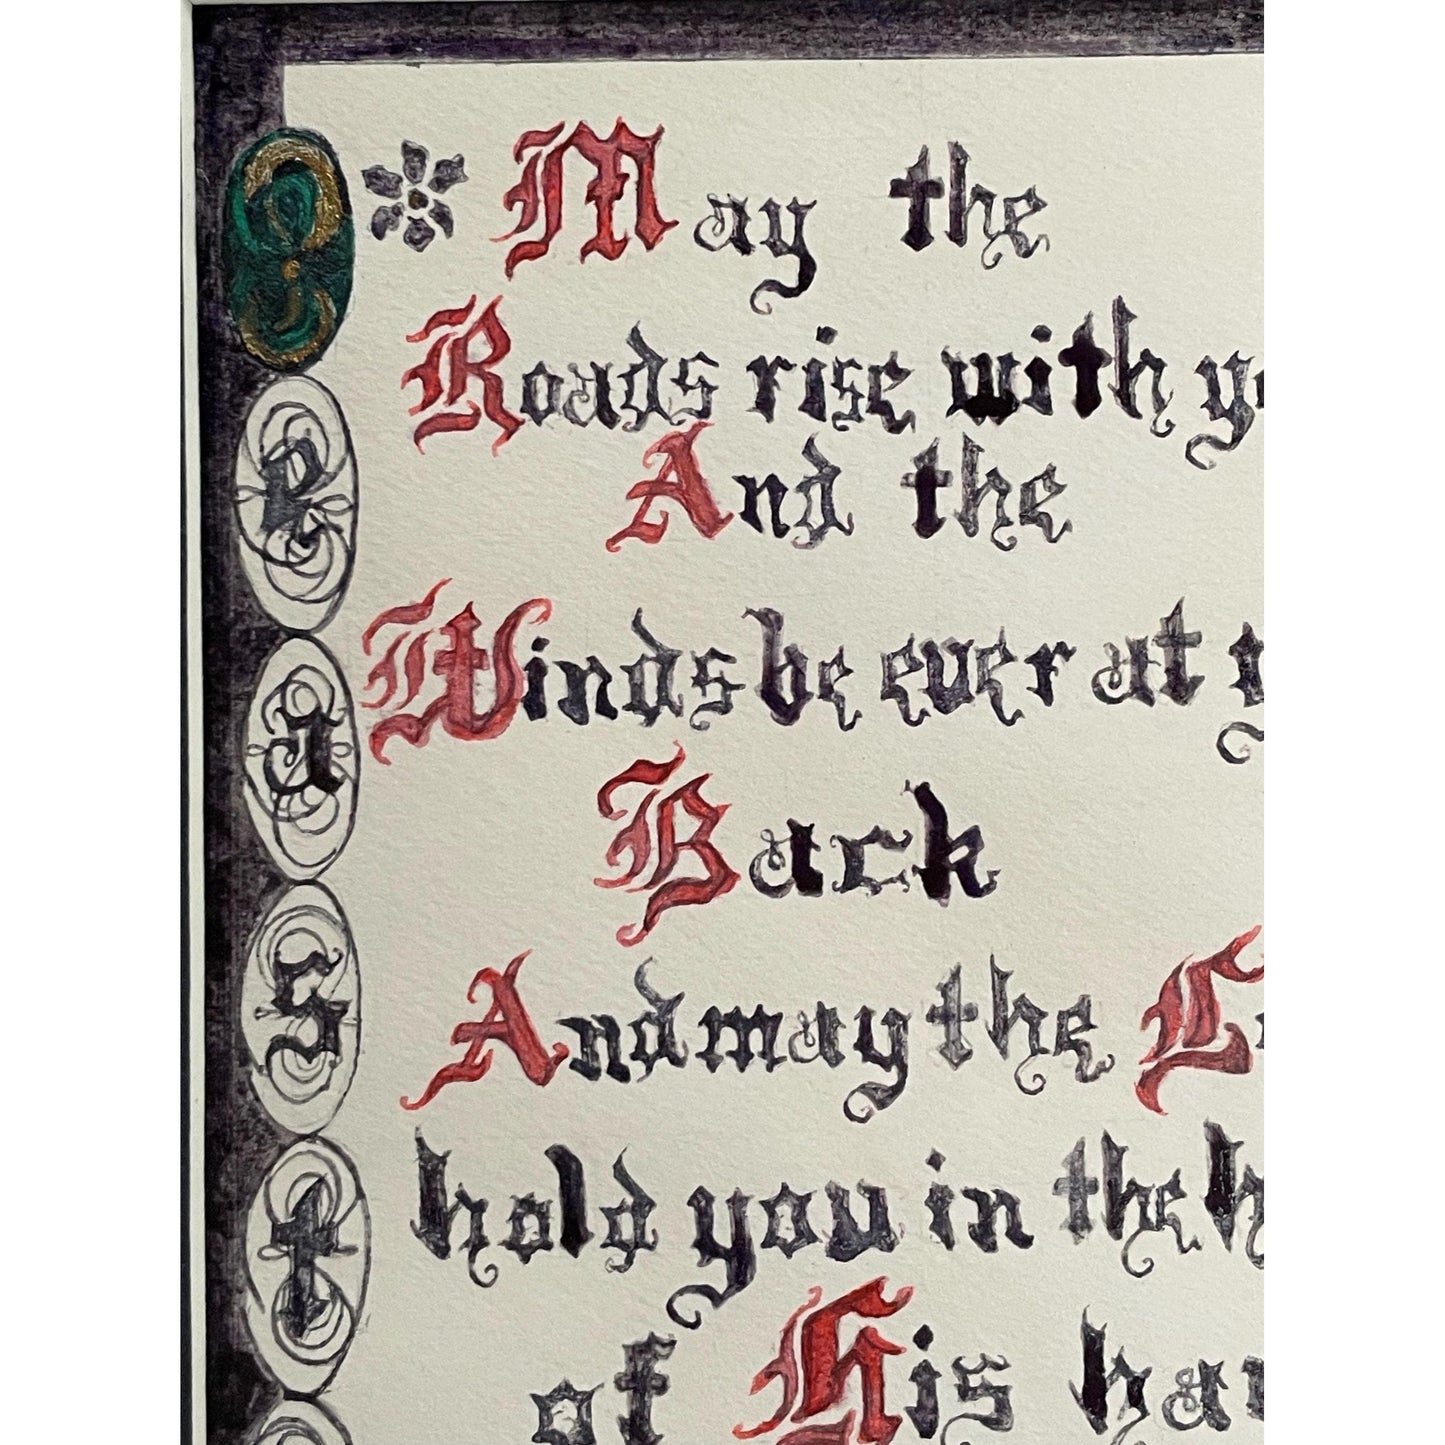 May the
Roads rise with yo
And the
Winds be ever at y
Back
And may the L
hold you in the h
of His han
r
i
s
t